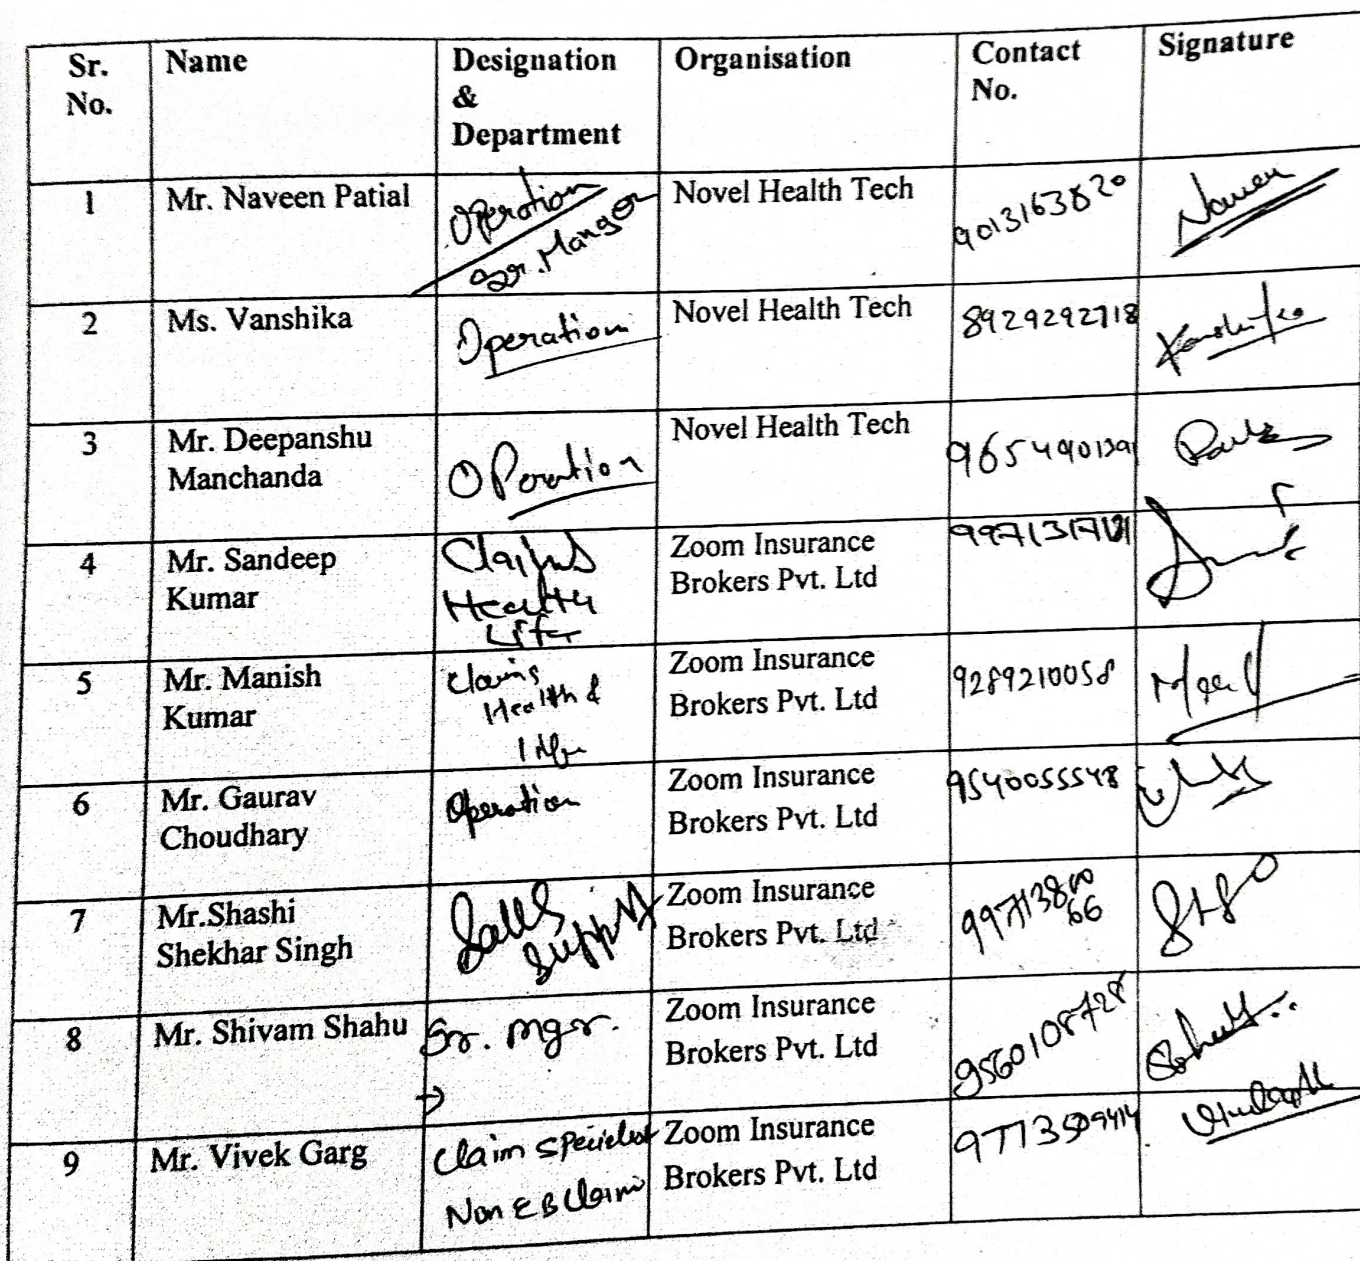 Sr. No. Name Designation & Department Organisation Contact No. Signature
1 Mr. Naveen Patial Operation Sr. Manger Novel Health Tech 9013163820 Naveen
2 Ms. Vanshika Operation Novel Health Tech 8929292718 Vanshika
3 Mr. Deepanshu Manchanda Operation Novel Health Tech
4 Mr. Sandeep Kumar Claims Health Life Zoom Insurance Brokers Pvt. Ltd
5 Mr. Manish Kumar Claims Health & Zoom Insurance Brokers Pvt. Ltd 9289210058
6 Mr. Gaurav Choudhary Operation Zoom Insurance Brokers Pvt. Ltd 9540055548
7 Mr.Shashi Shekhar Singh Sales Support Zoom Insurance Brokers Pvt. Ltd
8 Mr. Shivam Shahu Sr. Mgr. → Zoom Insurance Brokers Pvt. Ltd 9560108728
9 Mr. Vivek Garg Claim Specialist Non EB Claim Zoom Insurance Brokers Pvt. Ltd